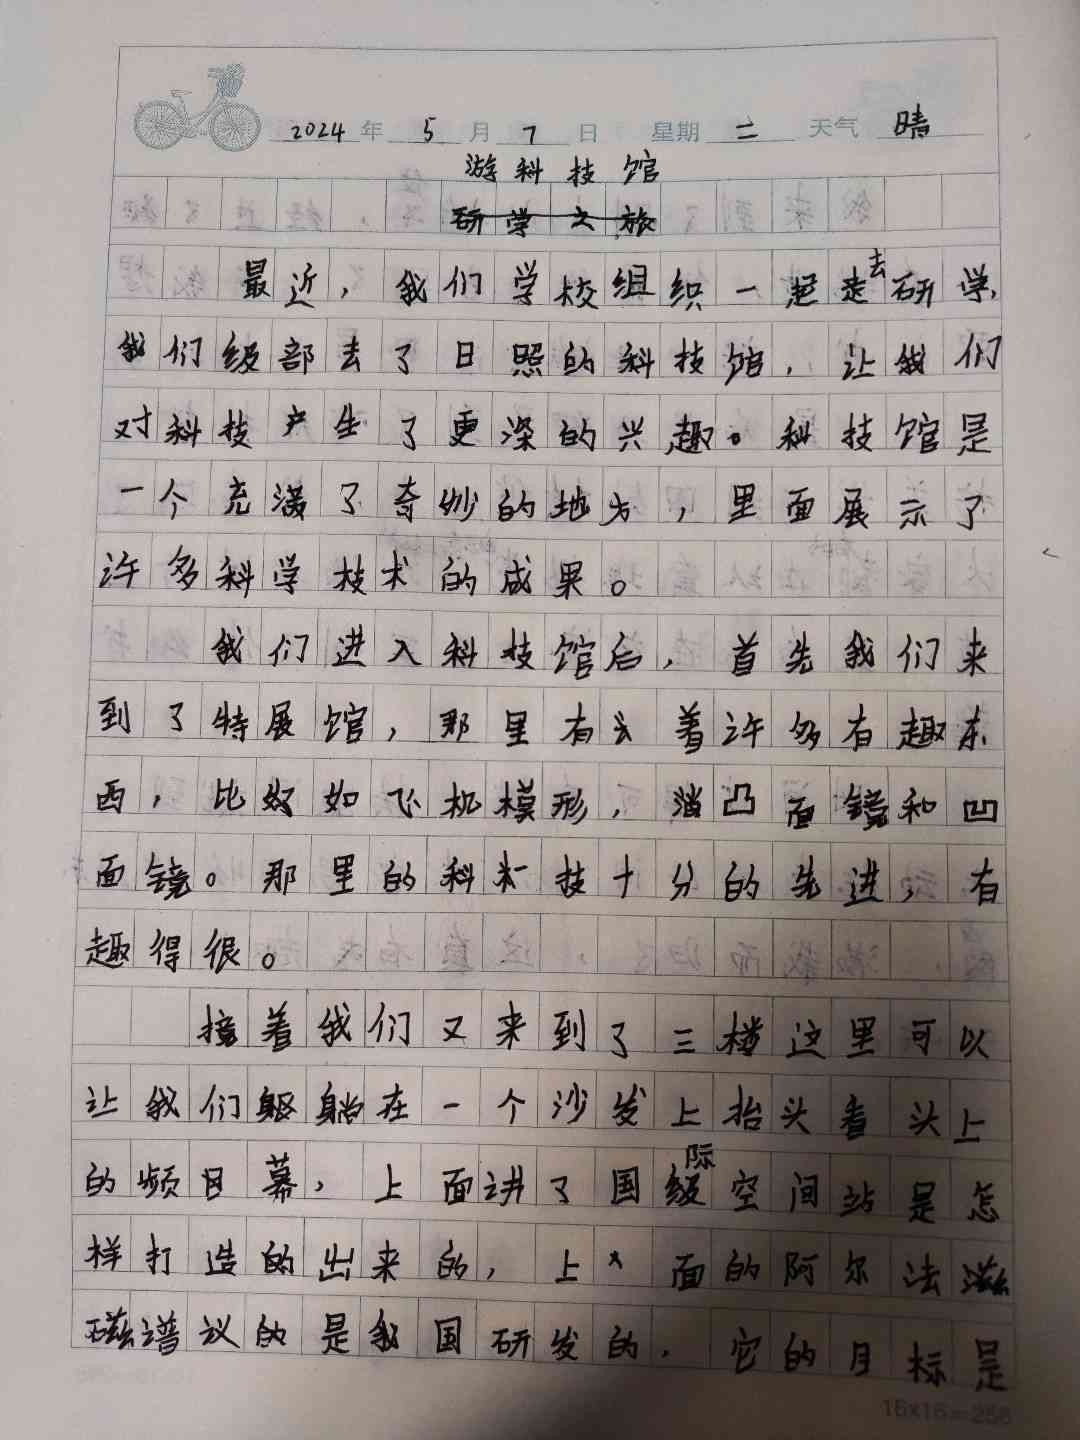 2024年5月7日 星期二 天气 晴
游科技馆
研学之旅
最近，我们学校组织一起去研学，
我们级部去了日照的科技馆，让我们
对科技产生了更深的兴趣。科技馆是
一个充满了奇妙的地方，里面展示了
许多科学技术的成果。
我们进入科技馆后，首先我们来
到了特展馆，那里有着许多有趣东
西，比如飞机模形，凸面镜和凹
面镜。那里的科技十分的先进，有
趣得很。
接着我们又来到了三楼这里可以
让我们躺在一个沙发上抬头看头上
的频目幕，上面讲了国际空间站是怎
样打造的出来的，上面的阿尔法
磁谱议的是我国研发的，它的月标是
16×16=256